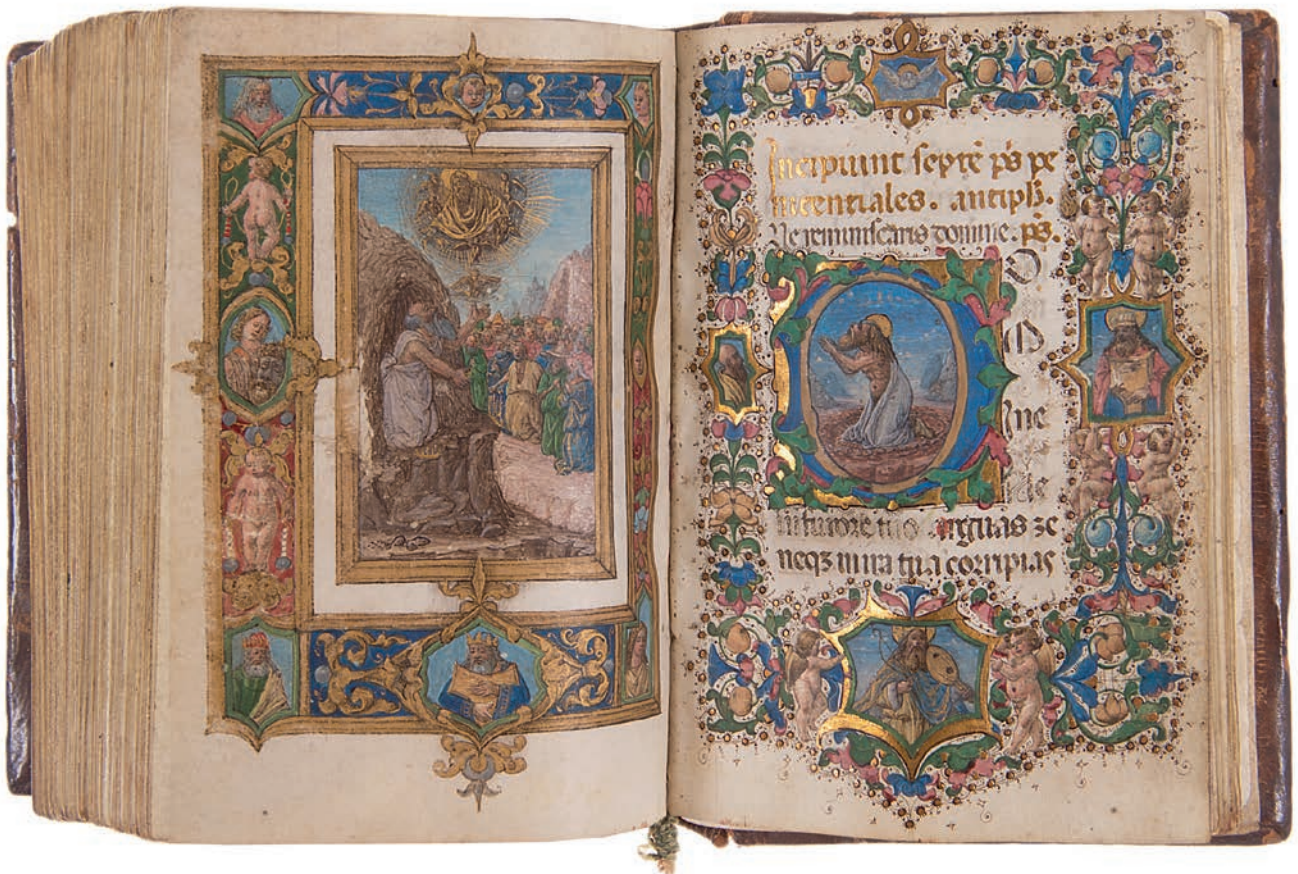 Incipiunt septē ps̄ pe
nitentiales. antiph̄.
Ne reminiscaris domine. ps̄.
D O
M
ne
in furore tuo arguas
neqz in ira tua corripias